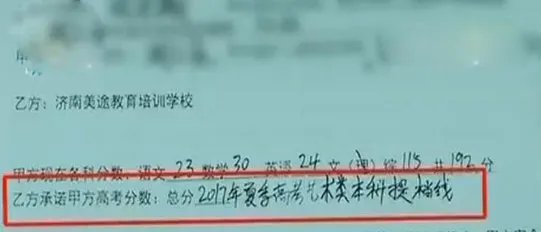 乙方：济南美途教育培训学校
甲方现在各科分数：语文23数学30 英语24文(理)综115共192分
乙方承诺甲方高考分数：总分2017年夏季高考艺术类本科提档线